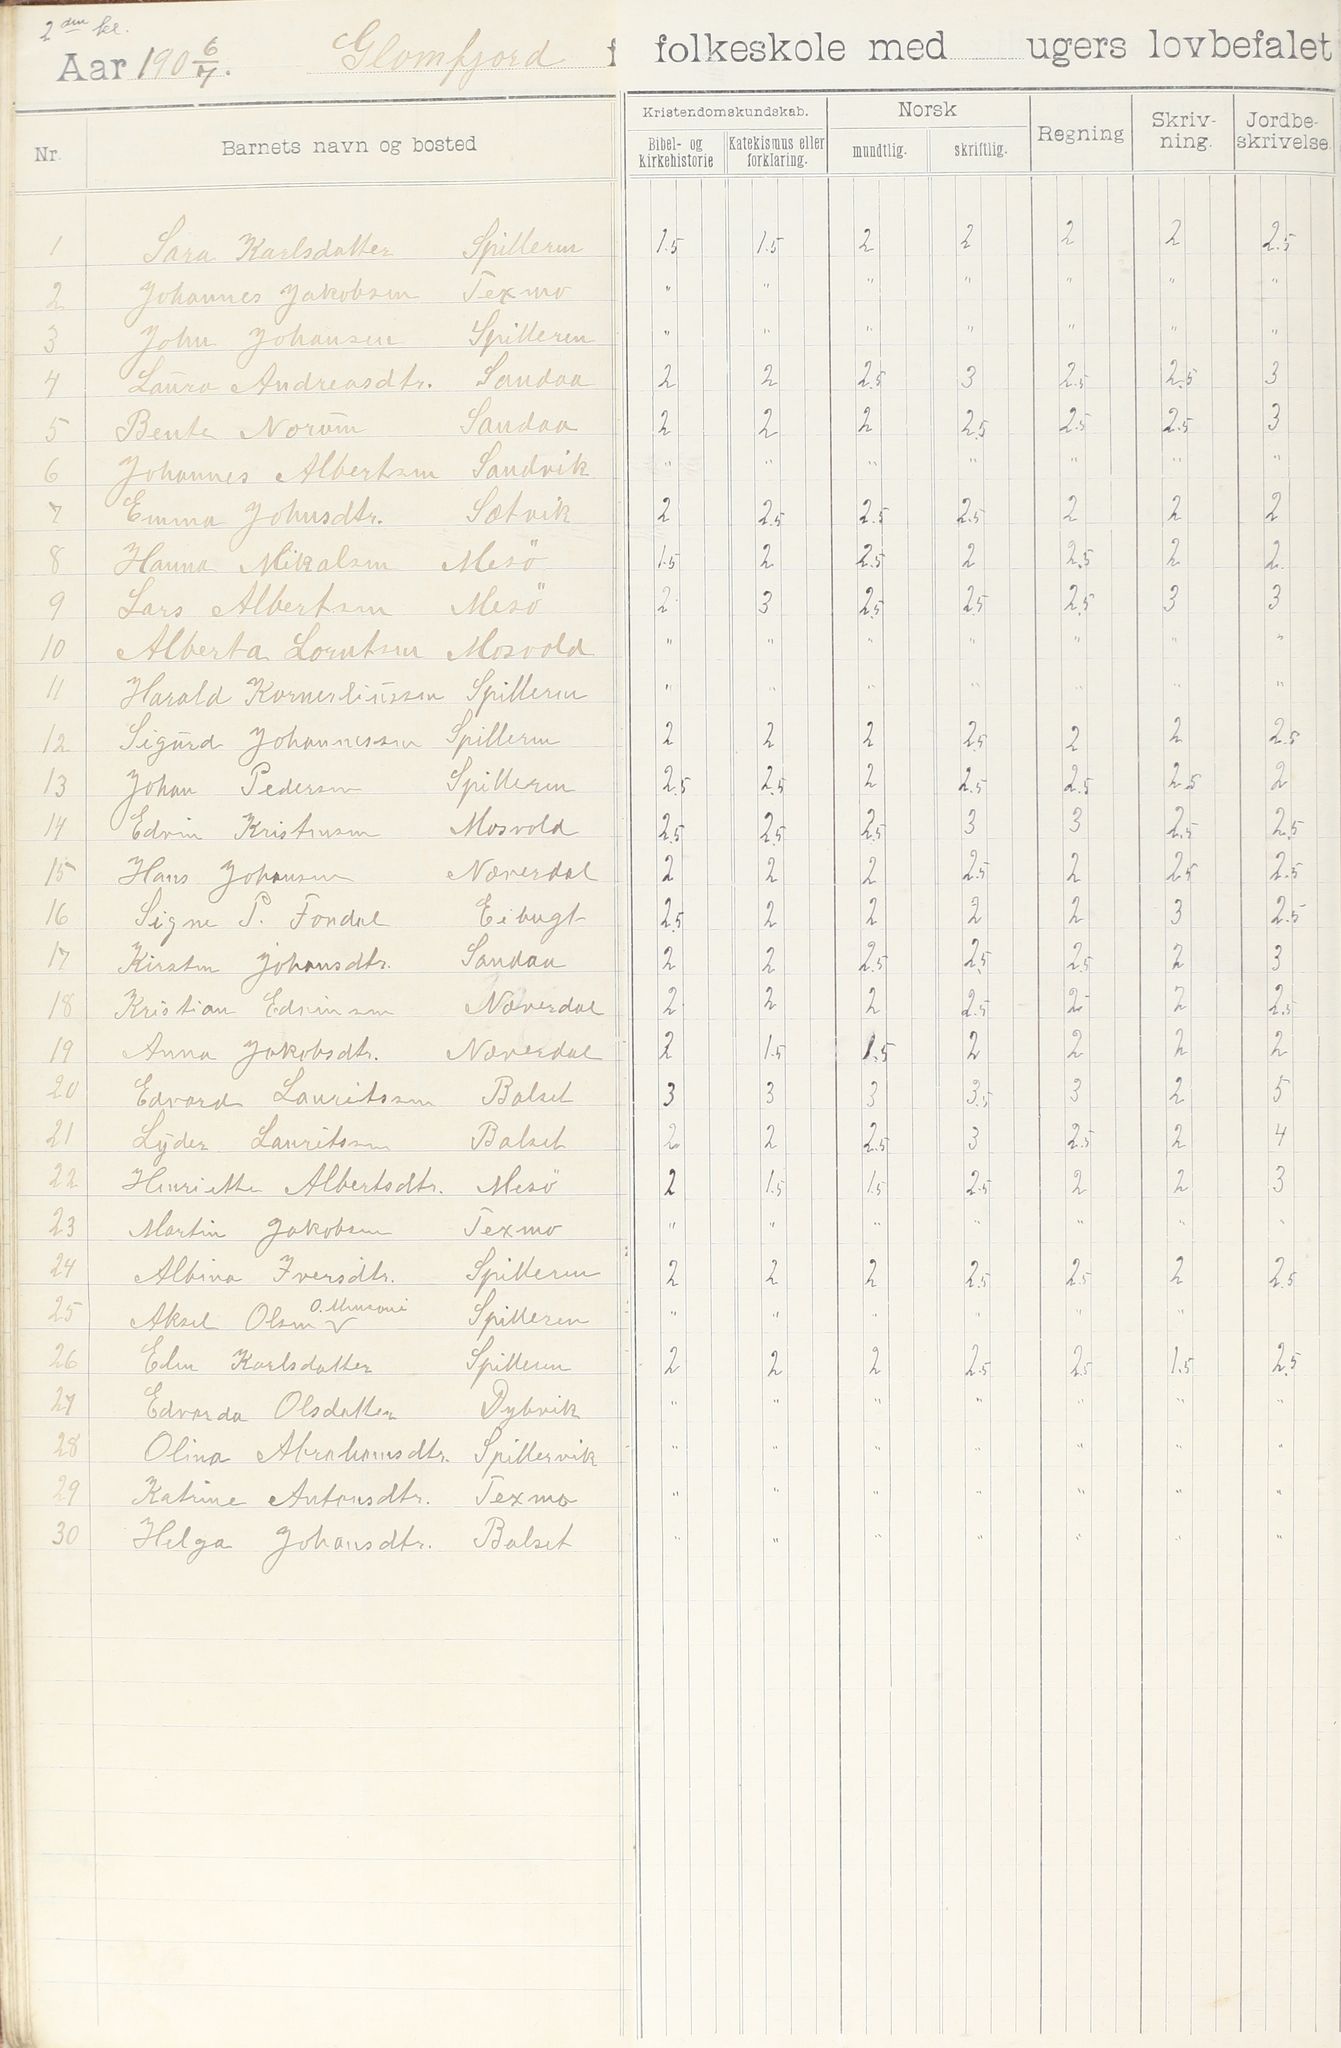 2 den kl.
Aar 190 6/7. Glomfjord f folkeskole med ugers lovbefalet
Nr. Barnets navn og bosted Kristendomskundskab. Norsk Regning Skriv-ning. Jordbe-skrivelse.
Bibel- og kirkehistorie Katekismus eller forklaring. mundtlig. skriftlig.
1 Sara Karlsdatter Spilleren 1.5 1.5 2 2 2 2 2.5
2 Johannes Jakobsen Texmo " " " " " " "
3 John Johansen Spilleren " " " " " " "
4 Laura Andreasdtr. Sandaa 2 2 2.5 3 2.5 2.5 3
5 Bente Norum Sandaa 2 2 2 2.5 2.5 2.5 3
6 Johannes Albertsen Sandvik " " " " " " "
7 Emma Johnsdtr. Sætvik 2 2.5 2.5 2.5 2 2 2
8 Hanna Mikalsen Mesö 1.5 2 2.5 2 2.5 2 2.
9 Lars Albertsen Mesö 2 3 2.5 2.5 2.5 3 3
10 Alberta Lorntsen Mosvold " " " " " " "
11 Harald Kornerliussen Spilleren " " " " " " "
12 Sigurd Johannessen Spilleren 2 2 2 2.5 2 2 2.5
13 Johan Pedersen Spilleren 2.5 2.5 2 2.5 2.5 2.5 2
14 Edvin Kristensen Mosvold 2.5 2.5 2.5 3 3 2.5 2.5
15 Hans Johansen Næverdal 2 2 2 2.5 2 2.5 2.5
16 Signe P. Fondal Eibugt 2.5 2 2 2 2 3 2.5
17 Kirsten Johansdtr. Sandaa 2 2 2.5 2.5 2.5 2 3
18 Kristian Edvinsen Næverdal 2 2 2 2.5 2 2 2.5
19 Anna Jakobsdtr. Næverdal 2 1.5 1.5 2 2 2 2
20 Edvard Lauritssen Balset 3 3 3 3.5 3 2 5
21 Lyder Lauritssen Balset 2 2 2.5 3 2.5 2 4
22 Henriette Albertsdtr. Mesö 2 1.5 1.5 2.5 2 2 3
23 Martin Jakobsen Texmo " " " " " " "
24 Albina Iversdtr. Spilleren 2 2 2 2.5 2.5 2 2.5
25 Aksel Olsen Spilleren " " " " " "
26 Elen Karlsdatter Spilleren 2 2 2 2.5 2.5 1.5 2.5
27 Edvarda Olsdatter Dybvik " " " " " " "
28 Olina Abrahamsdtr. Spillervik " " " " " " "
29 Katrine Antonsdtr. Texmo " " " " " " "
30 Helga Johansdtr. Balset " " " " " " "